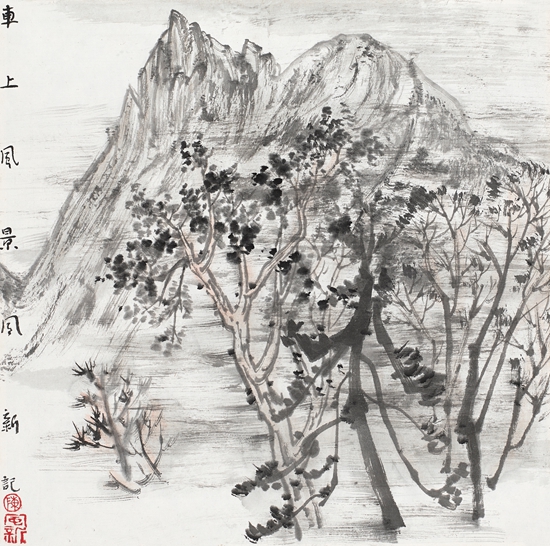 車上風景風新記
陳
風新